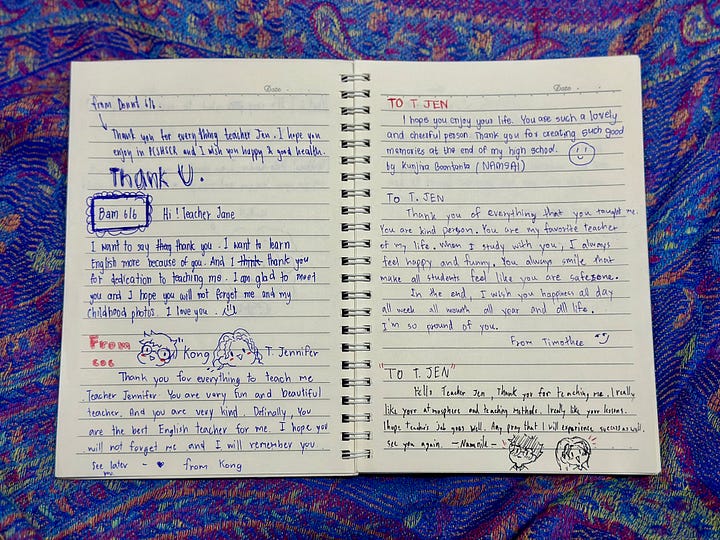 Date
from Donut 6/6.
Thank you for everything teacher Jen. I hope you
enjoy in PCSHSCR and I wish you happy & good health.
Thank U.
Bam 6/6 Hi ! Teacher Jane
I want to say they thank you. I want to learn
English more because of you. And I think thank you
for dedication to teaching me. I am glad to meet
you and I hope you will not forget me and my
childhood photos. I love you.
From
606
Kong T. Jennifer
Thank you for everything to teach me
Teacher Jennifer You are very fun and beautiful
teacher. And you are very kind. Definally, You
are the best English teacher for me. I hope you
will not forget me and I will remember you.
see later - ♥ from Kong
Date
TO T JEN
I hope you enjoy your life. You are such a lovely
and cheerful person. Thank you for creating such good
memories at the end of my high school.
by Kunjira Boontanta (NAMSAI)
TO T. JEN
Thank you of everything that you taught me.
You are kind person. You are my favorite teacher
of my life. When I study with you, I always
feel happy and funny. You always smile that
make all students feel like you are safezone.
In the end, I wish you happiness all day
all week all mounth all year and all life.
I'm so pround of you.
From Timothee
"TO T. JEN"
Hello Teacher Jen, Thank you for teaching me. I really
like your atmosphere and teaching methods. I really like your lessons.
I hope teacher's job goes well. Any pray that I will experience success as well.
see you again. - Nammile -